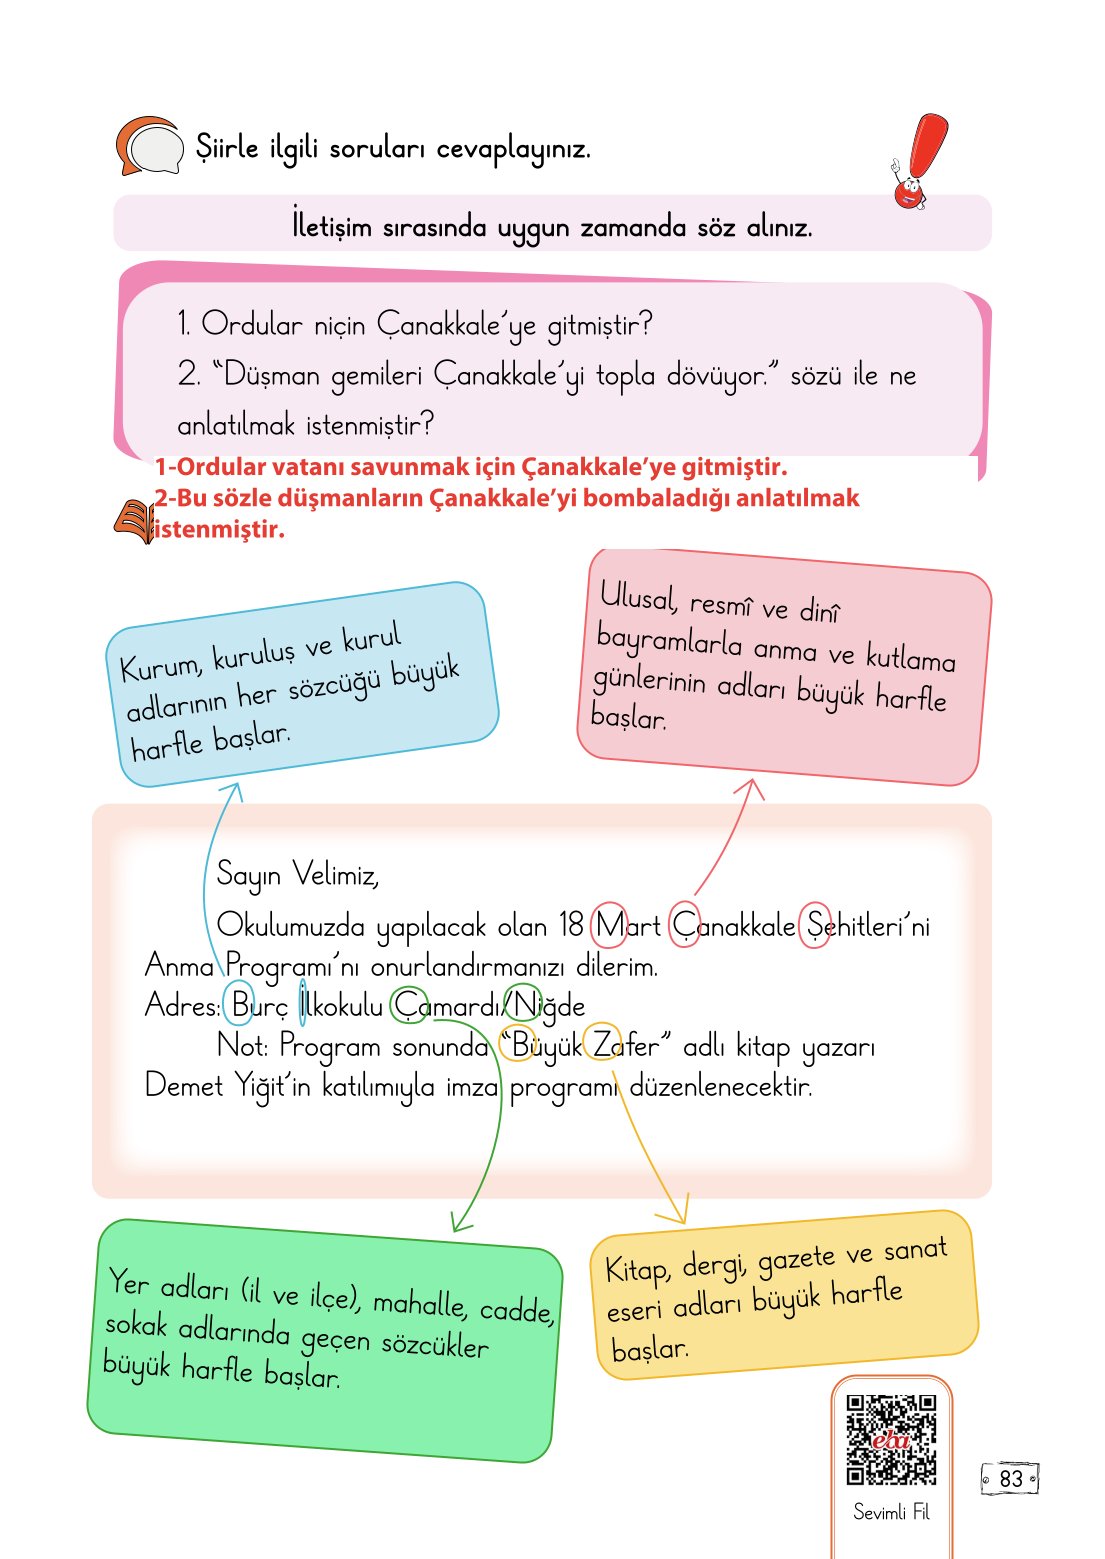 Şiirle ilgili soruları cevaplayınız.
İletişim sırasında uygun zamanda söz alınız.
1. Ordular niçin Çanakkale’ye gitmiştir?
2. “Düşman gemileri Çanakkale’yi topla dövüyor.” sözü ile ne
anlatılmak istenmiştir?
1-Ordular vatanı savunmak için Çanakkale’ye gitmiştir.
2-Bu sözle düşmanların Çanakkale’yi bombaladığı anlatılmak
istenmiştir.
Kurum, kuruluş ve kurul
adlarının her sözcüğü büyük
harfle başlar.
Ulusal, resmî ve dinî
bayramlarla anma ve kutlama
günlerinin adları büyük harfle
başlar.
Sayın Velimiz,
Okulumuzda yapılacak olan 18 Mart Çanakkale Şehitleri’ni
Anma Programı’nı onurlandırmanızı dilerim.
Adres: Burç İlkokulu Çamardı/Niğde
Not: Program sonunda “Büyük Zafer” adlı kitap yazarı
Demet Yiğit’in katılımıyla imza programı düzenlenecektir.
Yer adları (il ve ilçe), mahalle, cadde,
sokak adlarında geçen sözcükler
büyük harfle başlar.
Kitap, dergi, gazete ve sanat
eseri adları büyük harfle
başlar.
eba
Sevimli Fil
83